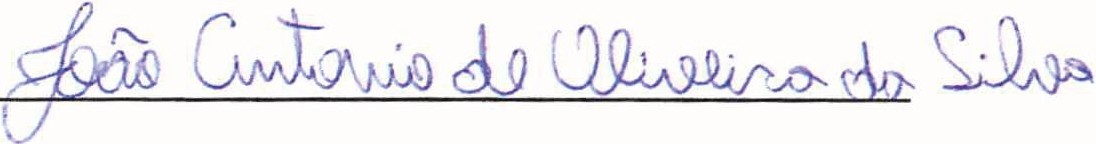 João Antonio de Oliveira da Silva